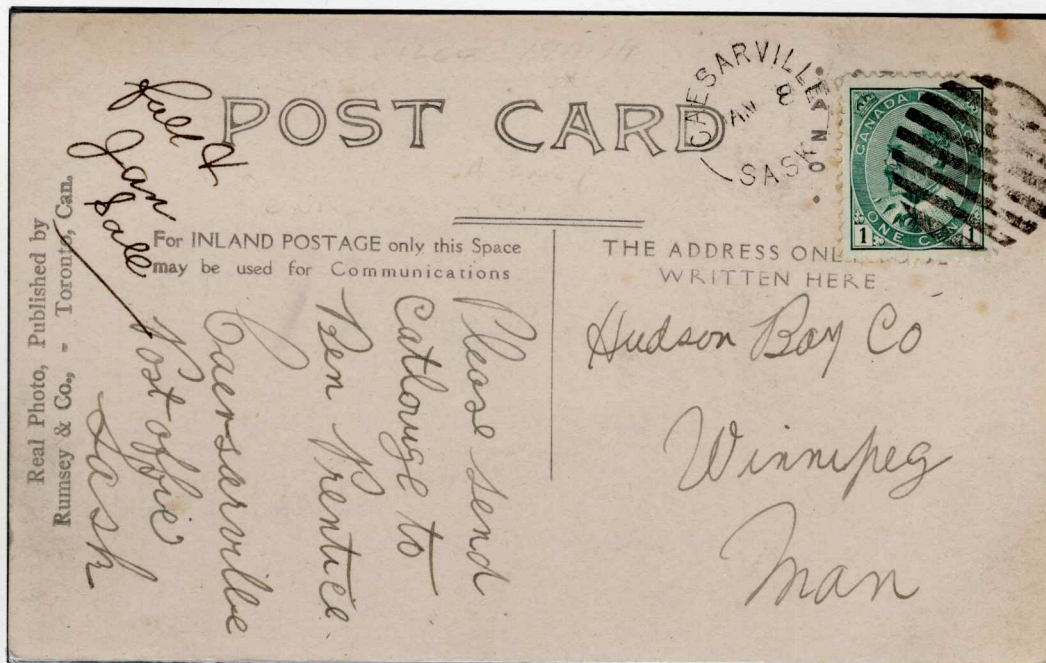 POST CARD
CAESARVILLE
AM 8
SASK
JAN
CANADA
ONE CENT
1 1
Real Photo, Published by
Rumsey & Co., - Toronto, Can.
Jan Sale
For INLAND POSTAGE only this Space
may be used for Communications
THE ADDRESS ONL
WRITTEN HERE
Please send
Catlouge to
Ben Prentice.
Caersarville
Post offic
Sask
Hudson Bay Co
Winnipeg
Man